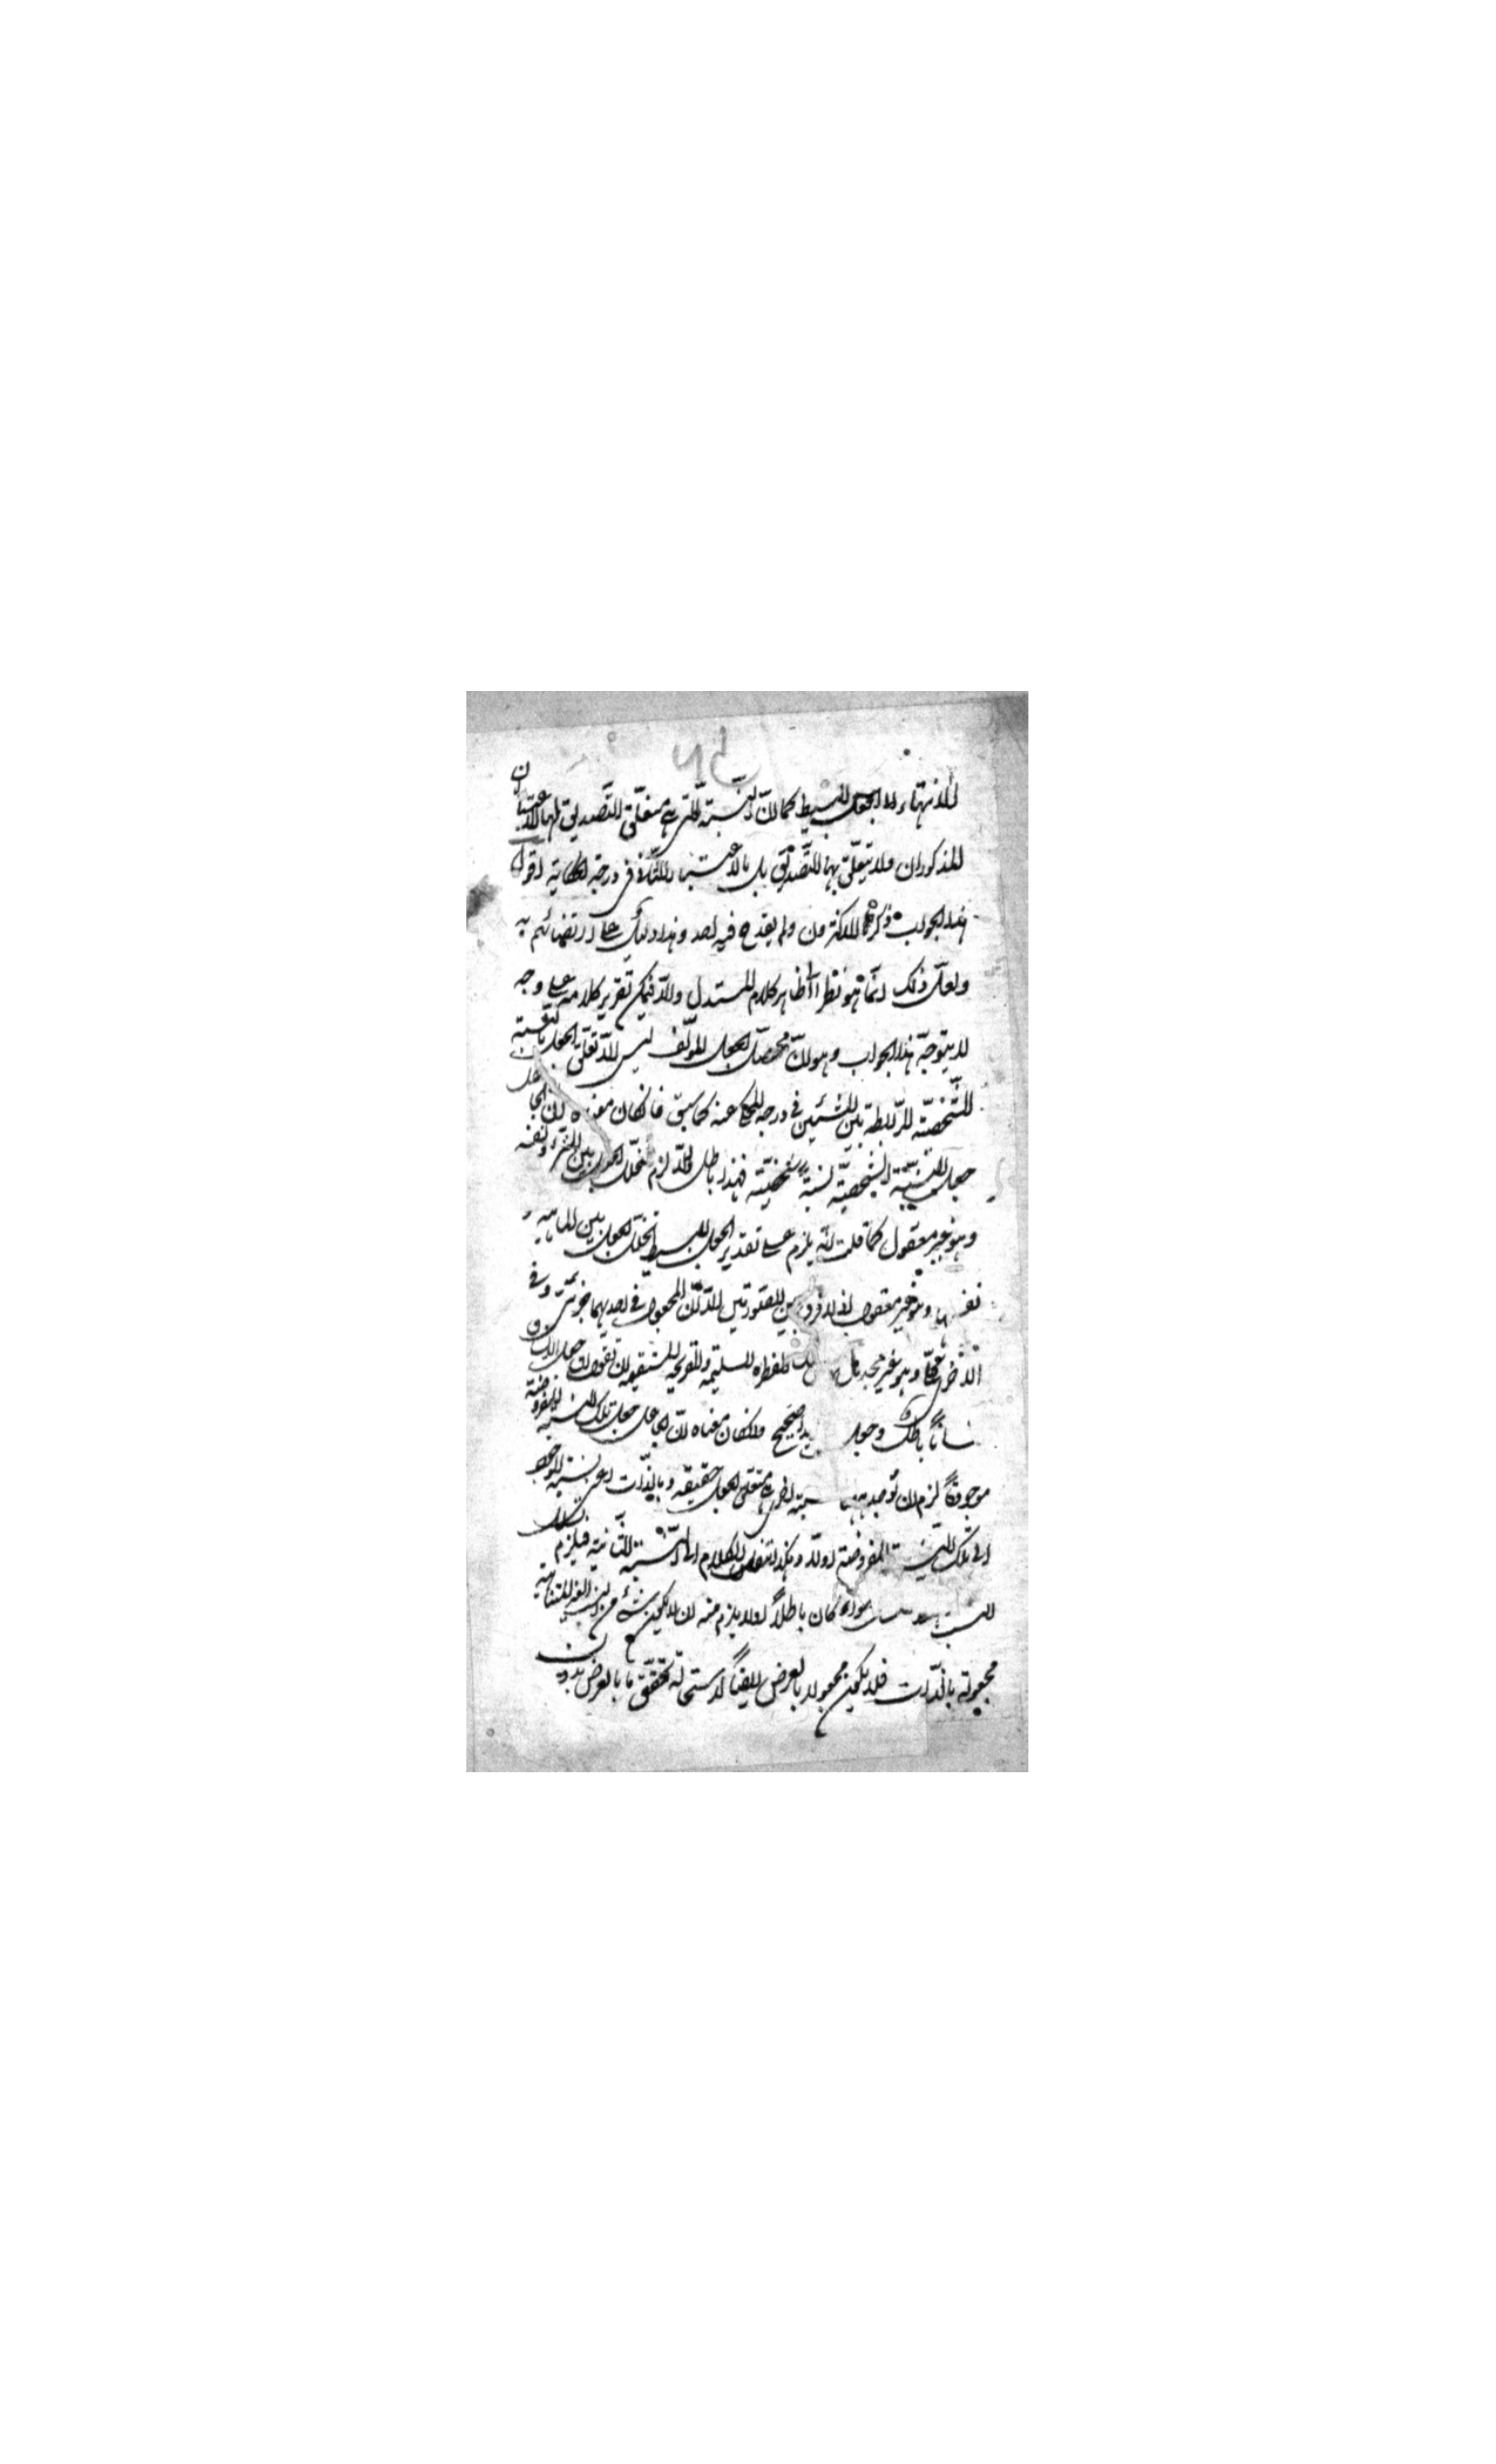 الانتهاء الى الجعل البسيط كما ان النسبة التى هى متعلق التصديق لها الاعتباران
المذكوران ولا يتعلق بها التصديق بل بالاعتبار الثانى فى درجة الحكاية اقول
هذا الجواب ذكره الاكثرون ولم يقدح فيه احد وهذا دليل على ارتضائهم به
ولعل ذلك انما هو نظرا الى ظاهر كلام المستدل والا فيمكن تقرير كلامه على وجه
لا يتوجه هذا الجواب وهو ان محصل الجعل المؤلف ليس الا تعلق الجعل بالنسبة
الشخصية الرابطة بين الشيئين فى درجة المحكى عنه كما سبق فان كان معناه ان الجاعل
جعل النسبة الشخصية نسبة شخصية فهذا باطل والا لزم تخلل الجعل بين الشئ ونفسه
وهو غير معقول كما قلت انه يلزم على تقدير الجعل البسيط تخلل الجعل بين الماهية و
نفسها وهو غير معقول اذ لا فرق بين الصورتين الا ان المجعول فى احديهما جزئى وفى
الاخرى كلى وهو غير مجد بل الفطرة السليمة والقريحة المستقيمة ان تقول ان جعل الانسان
انسانا باطل وجعل زيدا صحيح وان كان معناه ان الجاعل جعل تلك النسبة المفروضة
موجودة لزم ان توجد ههنا نسبة اخرى هى متعلق الجعل حقيقة وبالذات اعنى نسبة الوجود
الى تلك النسبة المفروضة اولا وهكذا ننقل الكلام الى النسبة الثانية فيلزم تسلسل
النسب كان باطلا اولا يلزم منه ان لا يكون شئ من النسب الغير المتناهية
مجعولة بالذات فلا يكون مجعولا بالعرض ايضا لاستحالة تحقق ما بالعرض بدون